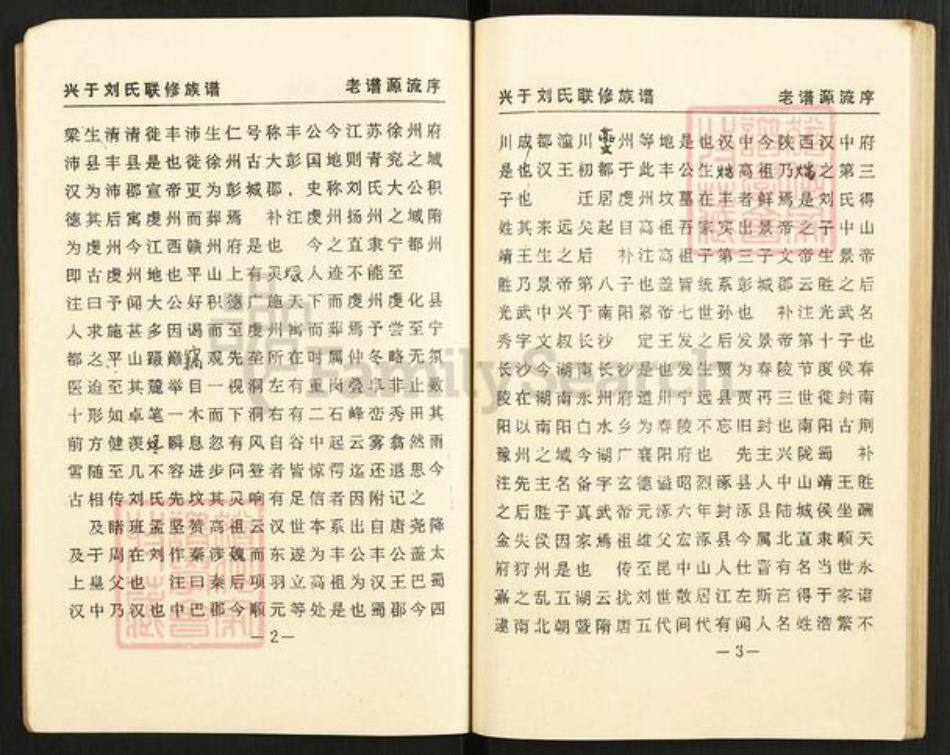 兴于刘氏联修族谱 老谱源流序
梁生清清徙丰沛生仁号称丰公今江苏徐州府
沛县丰县是也徙徐州古大彭国地则青兖之域
汉为沛郡宣帝更为彭城郡，史称刘氏大公积
德其后寓虔州而葬焉 补江虔州扬州之域隋
为虔州今江西赣州府是也 今之直隶宁都州
即古虔州地也平山上有灵 人迹不能至
注曰予闻大公好积德广施天下而虔州虔化县
人求施甚多因谒而至虔州寓而葬焉予尝至宁
都之平山蹑巅 观先茔所在时属仲冬略无氛
医迨至其麓举目一视洞左有重岗叠阜非止数
十形如卓笔一木而下洞右有二石峰峦秀田其
前方健羡 瞬息忽有风自谷中起云雾翕然雨
雪随至几不容进步问登者皆惊愕迄还退思今
古相传刘氏先坟其灵响有足信者因附记之
及睹班孟坚赞高祖云汉世本系出自唐尧降
及于周在刘作秦涉魏而东遂为丰公丰公盖太
上皇父也 注曰秦后项羽立高祖为汉王巴蜀
汉中乃汉也中巴郡今顺元等处是也蜀郡今四
—2—
兴于刘氏联修族谱 老谱源流序
川成都潼川 州等地是也汉中今陕西汉中府
是也汉王初都于此丰公生 高祖乃 之第三
子也 迁居虔州坟墓在丰者鲜焉是刘氏得
姓其来远矣起目高祖吾家实出景帝之子中山
靖王生之后 补注高祖子第三子文帝生景帝
胜乃景帝第八子也盖皆统系彭城郡云胜之后
光武中兴于南阳景帝七世孙也 补注光武名
秀字文叔长沙 定王发之后发景帝第十子也
长沙今湖南长沙是也发生贾为春陵节度侯春
陵在湖南永州府道川宁远县贾再三世徙封南
阳以南阳白水乡为春陵不忘旧封也南阳古荆
豫州之域今湖广襄阳府也 先主兴陇蜀 补
注先主名备字玄德谥昭烈涿县人中山靖王胜
之后胜子真武帝元涿六年封涿县陆城侯坐酬
金失侯因家焉祖雄父宏涿县今属北直隶顺天
府狩州是也 传至昆中山人仕晋有名当世永
嘉之乱五湖云扰刘世散居江左斯言得于家谱
逮南北朝暨隋唐五代间代有闻人名姓浩繁不
—3—
FamilySearch